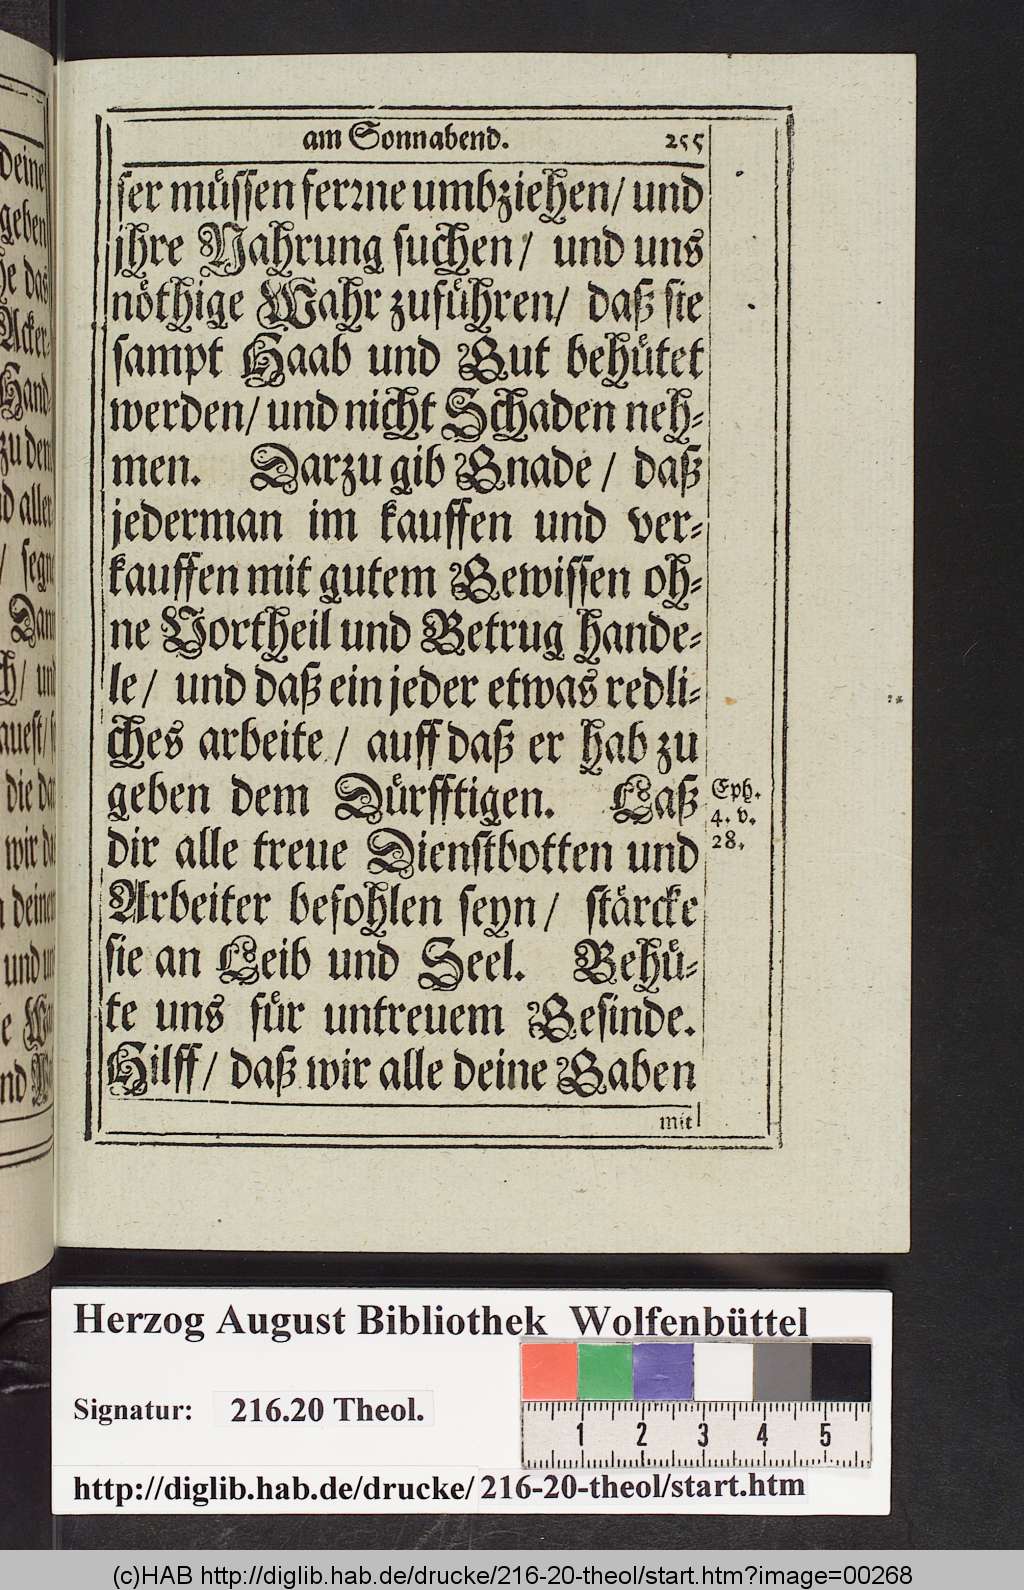 am Sonnabend. 255
ser müssen ferꝛne umbziehen/ und
jhre Nahrung suchen/ und uns
nöthige Wahr zuführen/ daß sie
sampt Haab und Gut behütet
werden/ und nicht Schaden neh-
men. Darzu gib Gnade/ daß
jederman im kauffen und ver-
kauffen mit gutem Gewissen oh-
ne Vortheil und Betrug hande-
le/ und daß ein jeder etwas redli-
ches arbeite/ auff daß er hab zu
geben dem Dürfftigen. Laß
dir alle treue Dienstbotten und
Arbeiter befohlen seyn/ stärcke
sie an Leib und Seel. Behü-
te uns für untreuem Gesinde.
Hilff/ daß wir alle deine Gaben
mit
Eph.
4. v.
28.
deine
geben
he das
Acker-
Hand-
zu dem
nd aller
/ segn
Dann
ch/ und
auest/
die da
wir da
deinen
und un
Herzog August Bibliothek Wolfenbüttel
Signatur: 216.20 Theol.
1 2 3 4 5
http://diglib.hab.de/drucke/216-20-theol/start.htm
(c)HAB http://diglib.hab.de/drucke/216-20-theol/start.htm?image=00268